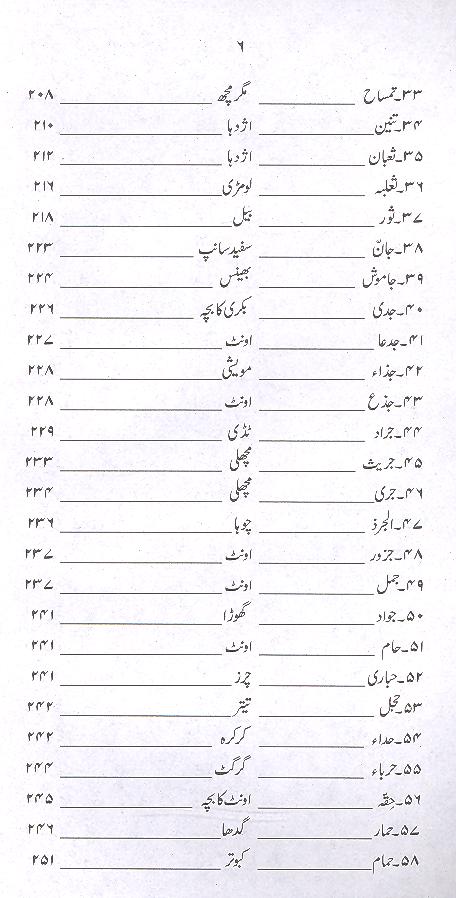 ۶
۳۳۔تمساح ____________ مگرمچھ ____________ ۲۰۸
۳۴۔تنین ____________ اژدہا ____________ ۲۱۰
۳۵۔ثعبان ____________ اژدہا ____________ ۲۱۲
۳۶۔ثعلبہ ____________ لومڑی ____________ ۲۱۶
۳۷۔ثور ____________ بیل ____________ ۲۱۸
۳۸۔جانّ ____________ سفید سانپ ____________ ۲۲۳
۳۹۔جاموش ____________ بھینس ____________ ۲۲۴
۴۰۔جدی ____________ بکری کا بچہ ____________ ۲۲۶
۴۱۔جدعا ____________ اونٹ ____________ ۲۲۷
۴۲۔جذاء ____________ مویشی ____________ ۲۲۸
۴۳۔جذع ____________ اونٹ ____________ ۲۲۸
۴۴۔جراد ____________ ٹڈی ____________ ۲۲۹
۴۵۔جریث ____________ مچھلی ____________ ۲۳۳
۴۶۔جری ____________ مچھلی ____________ ۲۳۴
۴۷۔الجرذ ____________ چوہا ____________ ۲۳۶
۴۸۔جزور ____________ اونٹ ____________ ۲۳۷
۴۹۔جمل ____________ اونٹ ____________ ۲۳۷
۵۰۔جواد ____________ گھوڑا ____________ ۲۴۱
۵۱۔حام ____________ اونٹ ____________ ۲۴۱
۵۲۔حباری ____________ چرز ____________ ۲۴۱
۵۳۔حجل ____________ تیتر ____________ ۲۴۲
۵۴۔حداء ____________ کرکرہ ____________ ۲۴۲
۵۵۔حرباء ____________ گرگٹ ____________ ۲۴۴
۵۶۔حِقّہ ____________ اونٹ کا بچہ ____________ ۲۴۵
۵۷۔حمار ____________ گدھا ____________ ۲۴۶
۵۸۔حمام ____________ کبوتر ____________ ۲۵۱